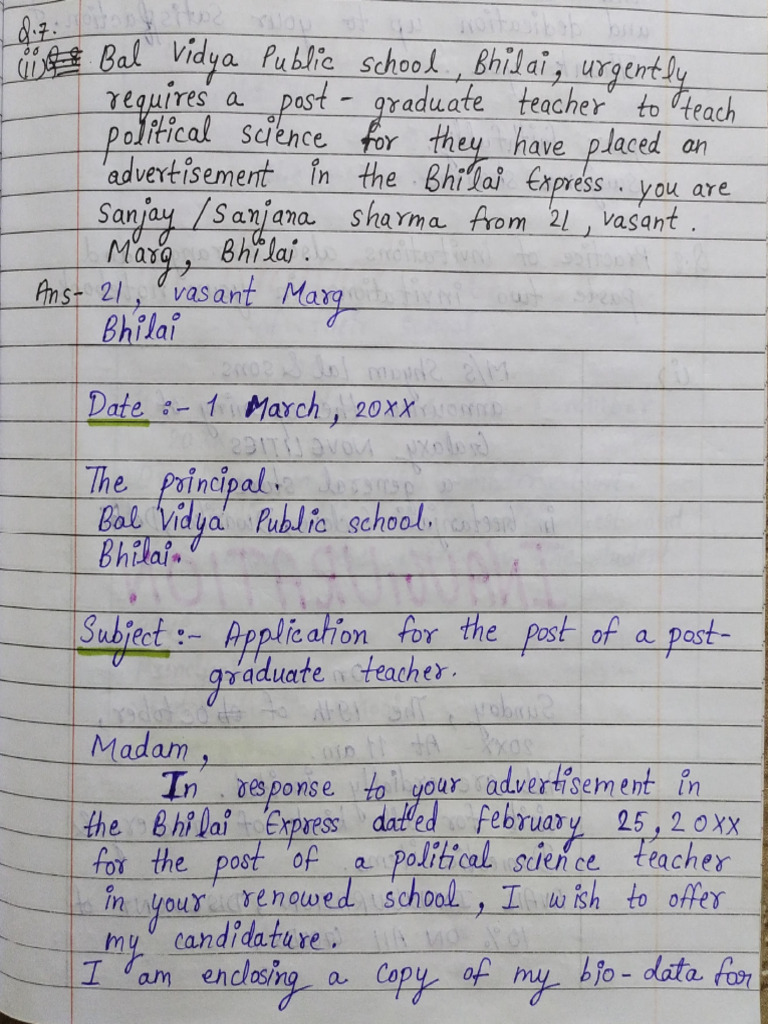 Q.7:
(ii) Bal Vidya Public school, Bhilai, urgently
requires a post-graduate teacher to teach
political science for they have placed an
advertisement in the Bhilai Express. you are
Sanjay /Sanjana sharma from 21, vasant.
Marg, Bhilai.
Ans- 21, vasant Marg
Bhilai
Date :- 1 March, 20XX
The principal.
Bal Vidya Public school.
Bhilai.
Subject :- Application for the post of a post-
graduate teacher.
Madam,
In response to your advertisement in
the Bhilai Express dated february 25, 20XX
for the post of a political science teacher
in your renowed school, I wish to offer
my candidature.
I am enclosing a copy of my bio-data for